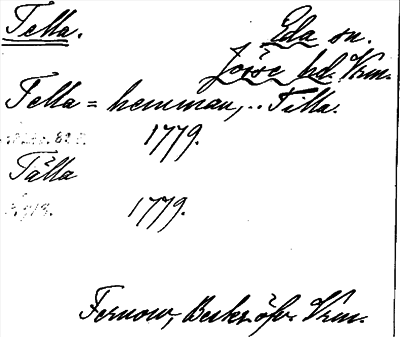 Tella.
Eda sn.
Jösse hd. Vrm.
Tella = hemman, .. Tilla.
1779.
Tälla
1779.
Fernow, Beskr. öfver Vrm.